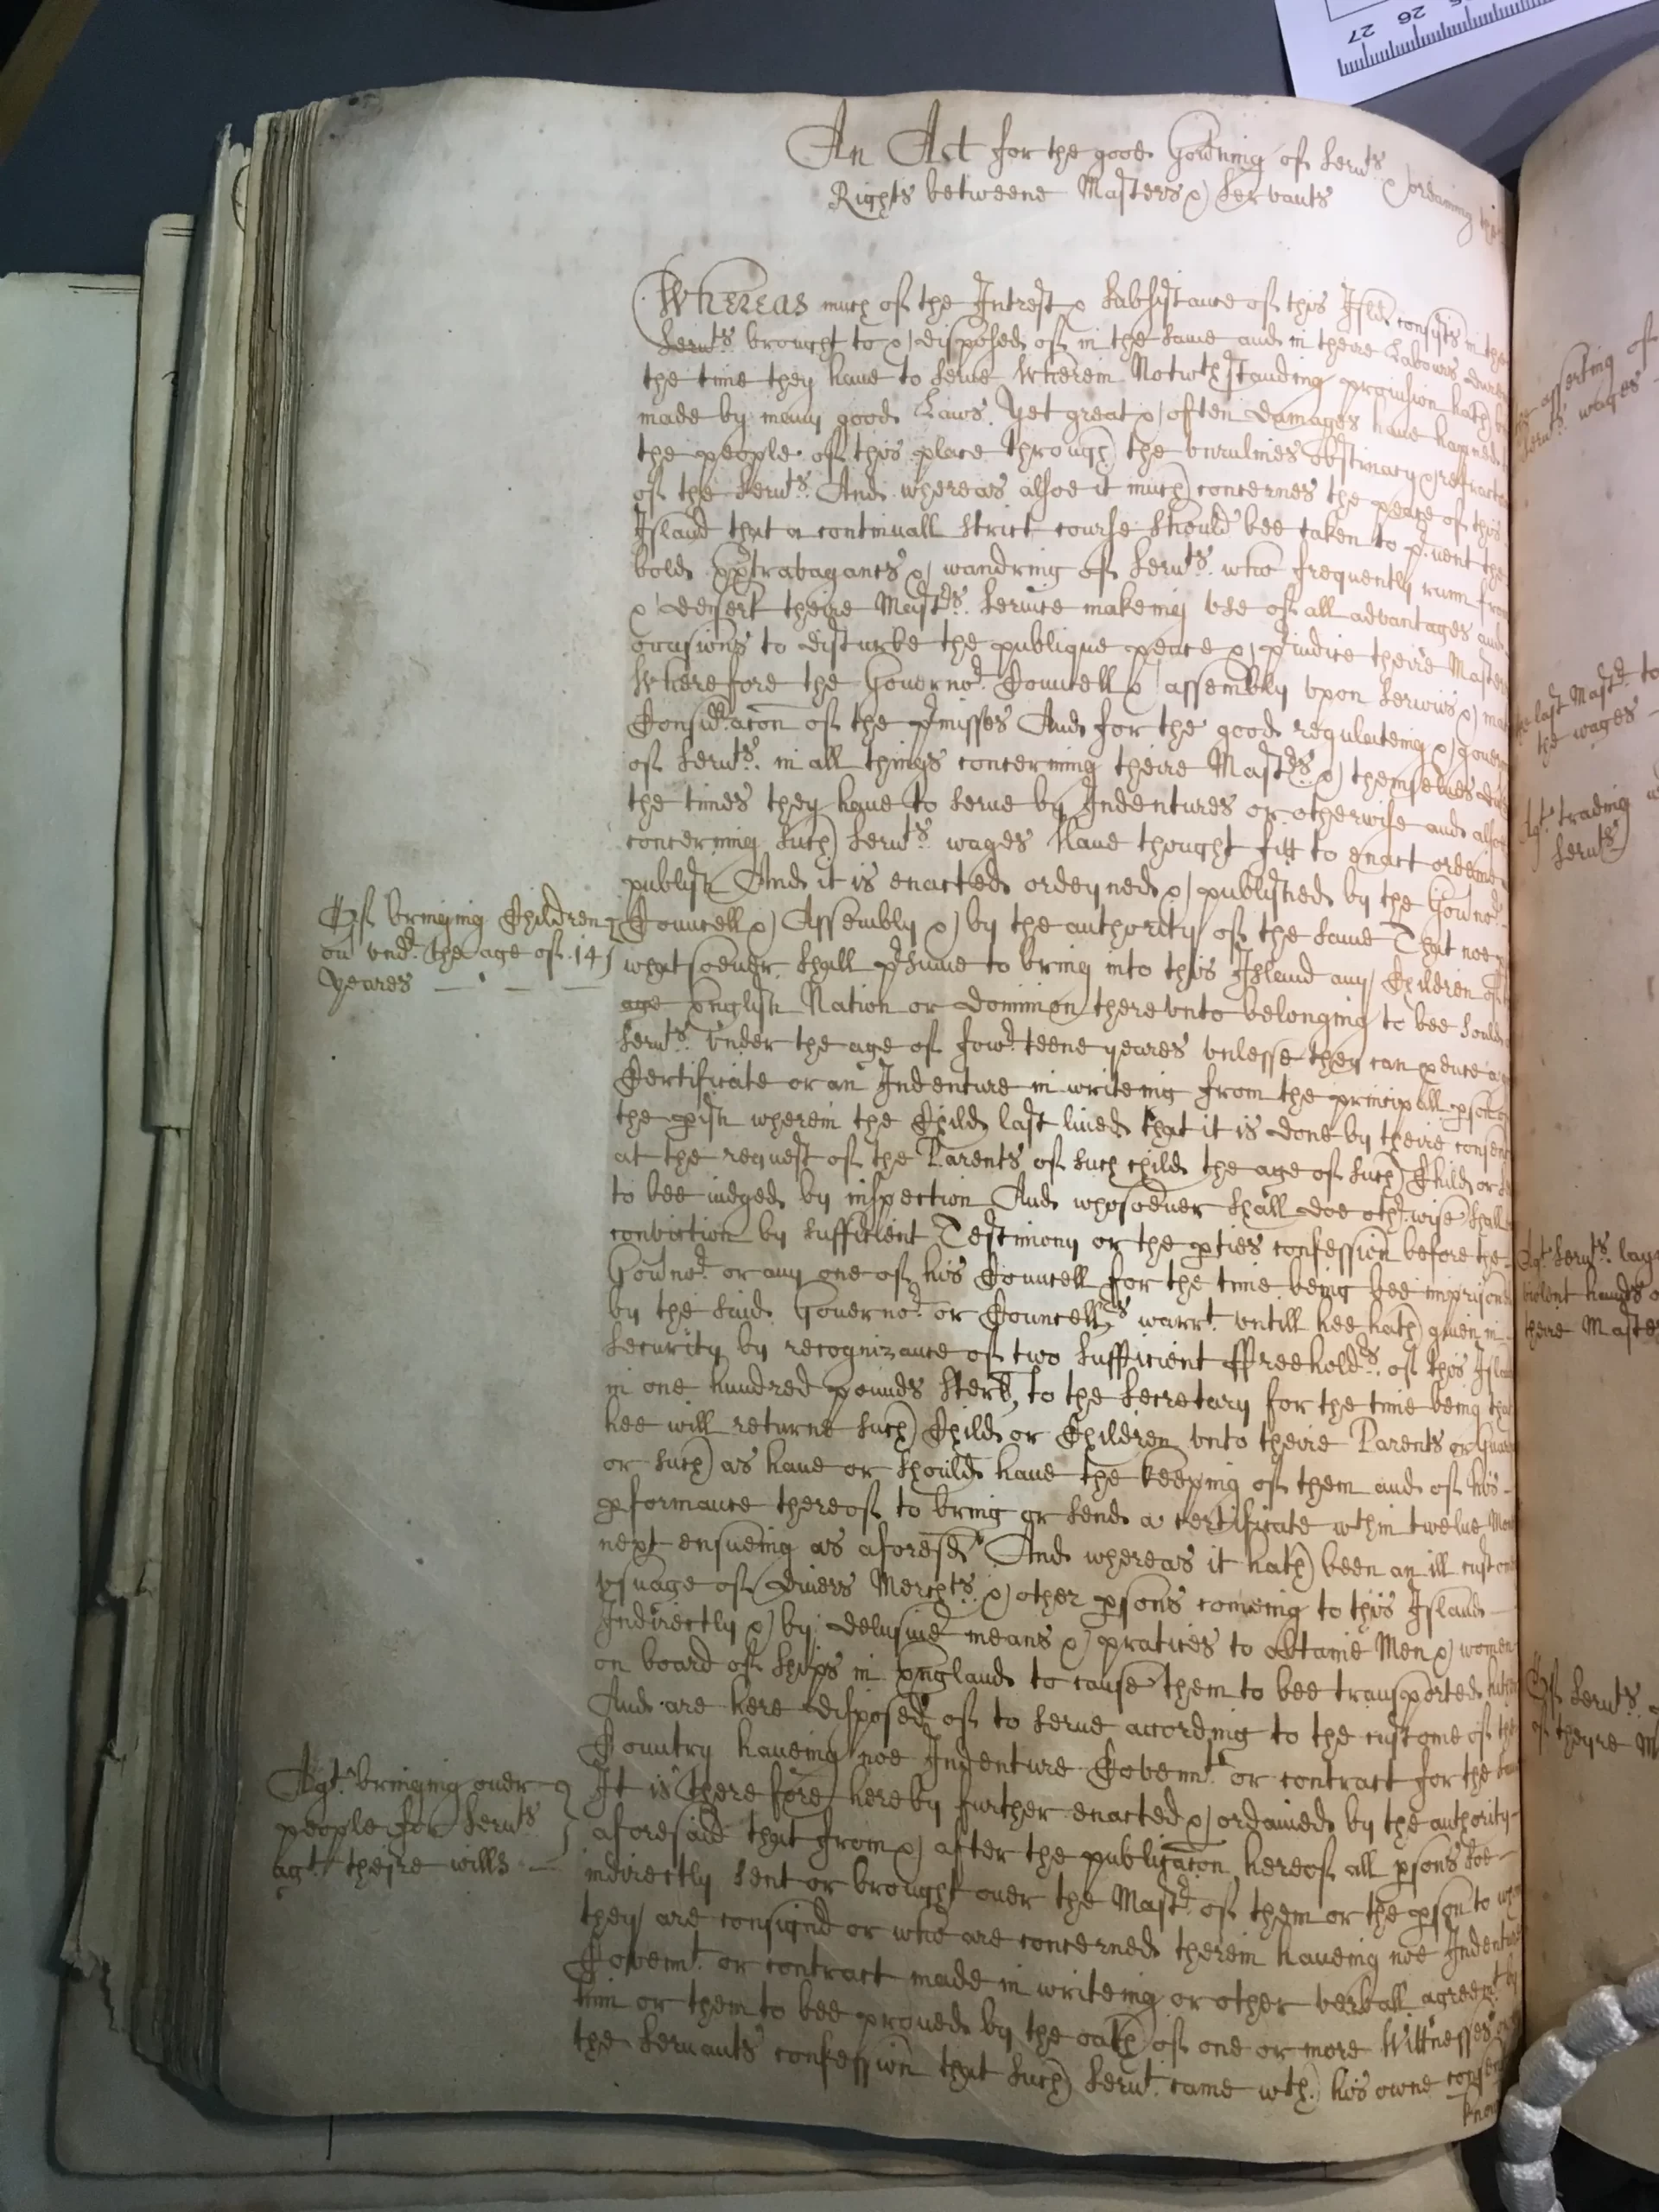 An Act for the good Gov'ning of Servts & ordaining the
Rights betweene Masters & Servants
Whereas much of the Intrest & Subsistance of this Isld consists in the
Servts brought to & disposed of in the same and in theire Labours dureing
the time they haue to serue Wherein Notwthstanding prouision hath
made by many good Laws. Yet great & often damages haue hapned
the people of this place through the vnrulines obstinacy & refractor
of the Servts. And whereas alsoe it much concernes the peace of this
Island that a continuall strict course should bee taken to p'uent the
bold Extrabagants & wandring of Servts. who frequently runn from
& desert theire Mastrs. Seruice makeing vse of all advantages and
occasions to disturbe the publique peace & p'iudice theire Masters
Wherefore the Gouerno'r Councell & assembly vpon serious & mat
Consideracon of the p'misses And for the good regulateing & gouern
of Servts. in all things concerning theire Mastrs & themselues dur
the times they haue to serue by Indentures or otherwise and alsoe
concerning such Servts wages Haue thought fitt to enact ordeine
publish And it is enacted ordeyned & published by the Gov'no'r
Of bringing Children
on vndr the age of 14
yeares
Councell & Assembly & by the authority of the same That noe
whatsoeuer shall p'sume to bring into this Island any Children of
age English Nation or dominion there vnto belonging to bee sould
Servts vnder the age of fowrteene yeares vnlesse they can p'duce a
Certificate or an Indenture in writeing from the principall p'son
the p'ish wherein the Child last liued that it is done by theire consent
at the request of the Parents of such child the age of such Child or
to bee iudged by inspection And whosoeuer shall doe othrwise shall
conviction by sufficient Testimony or the p'ties confession before the
Gov'no'r or any one of his Councell for the time being bee imprisoned
by the said Gouerno'r or Councellrs warrt. vntill hee hath giuen in
Security by recognizance of two sufficient ffreeholdrs. of this Island
in one hundred pounds Sterl, to the Secretary for the time being that
hee will returne such Child or Children vnto theire Parents or Guard
or such as haue or should haue the keeping of them and of his
p'formance thereof to bring or send a certificate wthin twelue Mon
next ensueing as aforesd And whereas it hath been an ill custom
vsuage of diuers Merchts. & other p'sons comeing to this Island
Indirectly & by delusiue means & pratices to obtaine Men & women
on board of Ships in England to cause them to bee transported hither
And are here disposed of to serue according to the custome of the
Country haueing noe Indenture Covennt. or contract for the same
Agt. bringing ouer
people for Servts
agt. theire wills
It is therefore hereby further enacted & ordained by the authority
aforesaid that from & after the publicacon hereof all p'sons soe
indirectly sent or brought ouer the Mastr of them or the p'son to whom
they are consignd or who are concerned therein haueing noe Indenture
Covennt. or contract made in writeing or other verball agreemt by
him or them to bee proued by the oath of one or more Wittnesses or
the Servants confession that such Servt. came wth. his owne consent
know
asserting of
Servts wages
last Mastr to
the wages
Agt. trading
Servts
Agt Servts. lay
violent hands o
theire Maste
Of Servts.
of theyre M
27
26